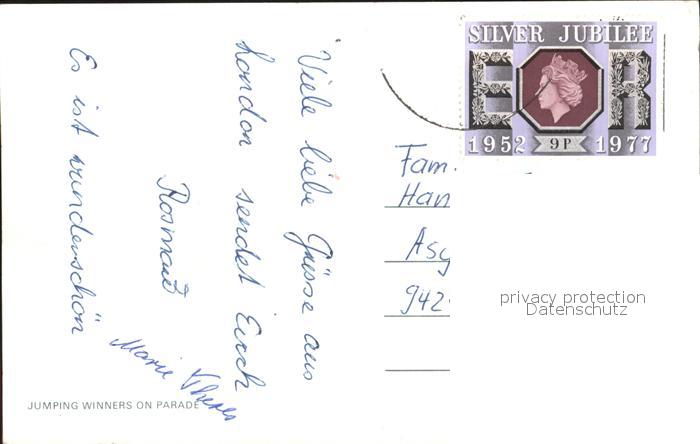 Viele liebe Grüsse aus
London sendet Euch
Rosmarie
Marie Theres
Es ist wunderschön
JUMPING WINNERS ON PARADE
SILVER JUBILEE
E R
1952 9P 1977
Fam.
Han
Asy
942
privacy protection
Datenschutz